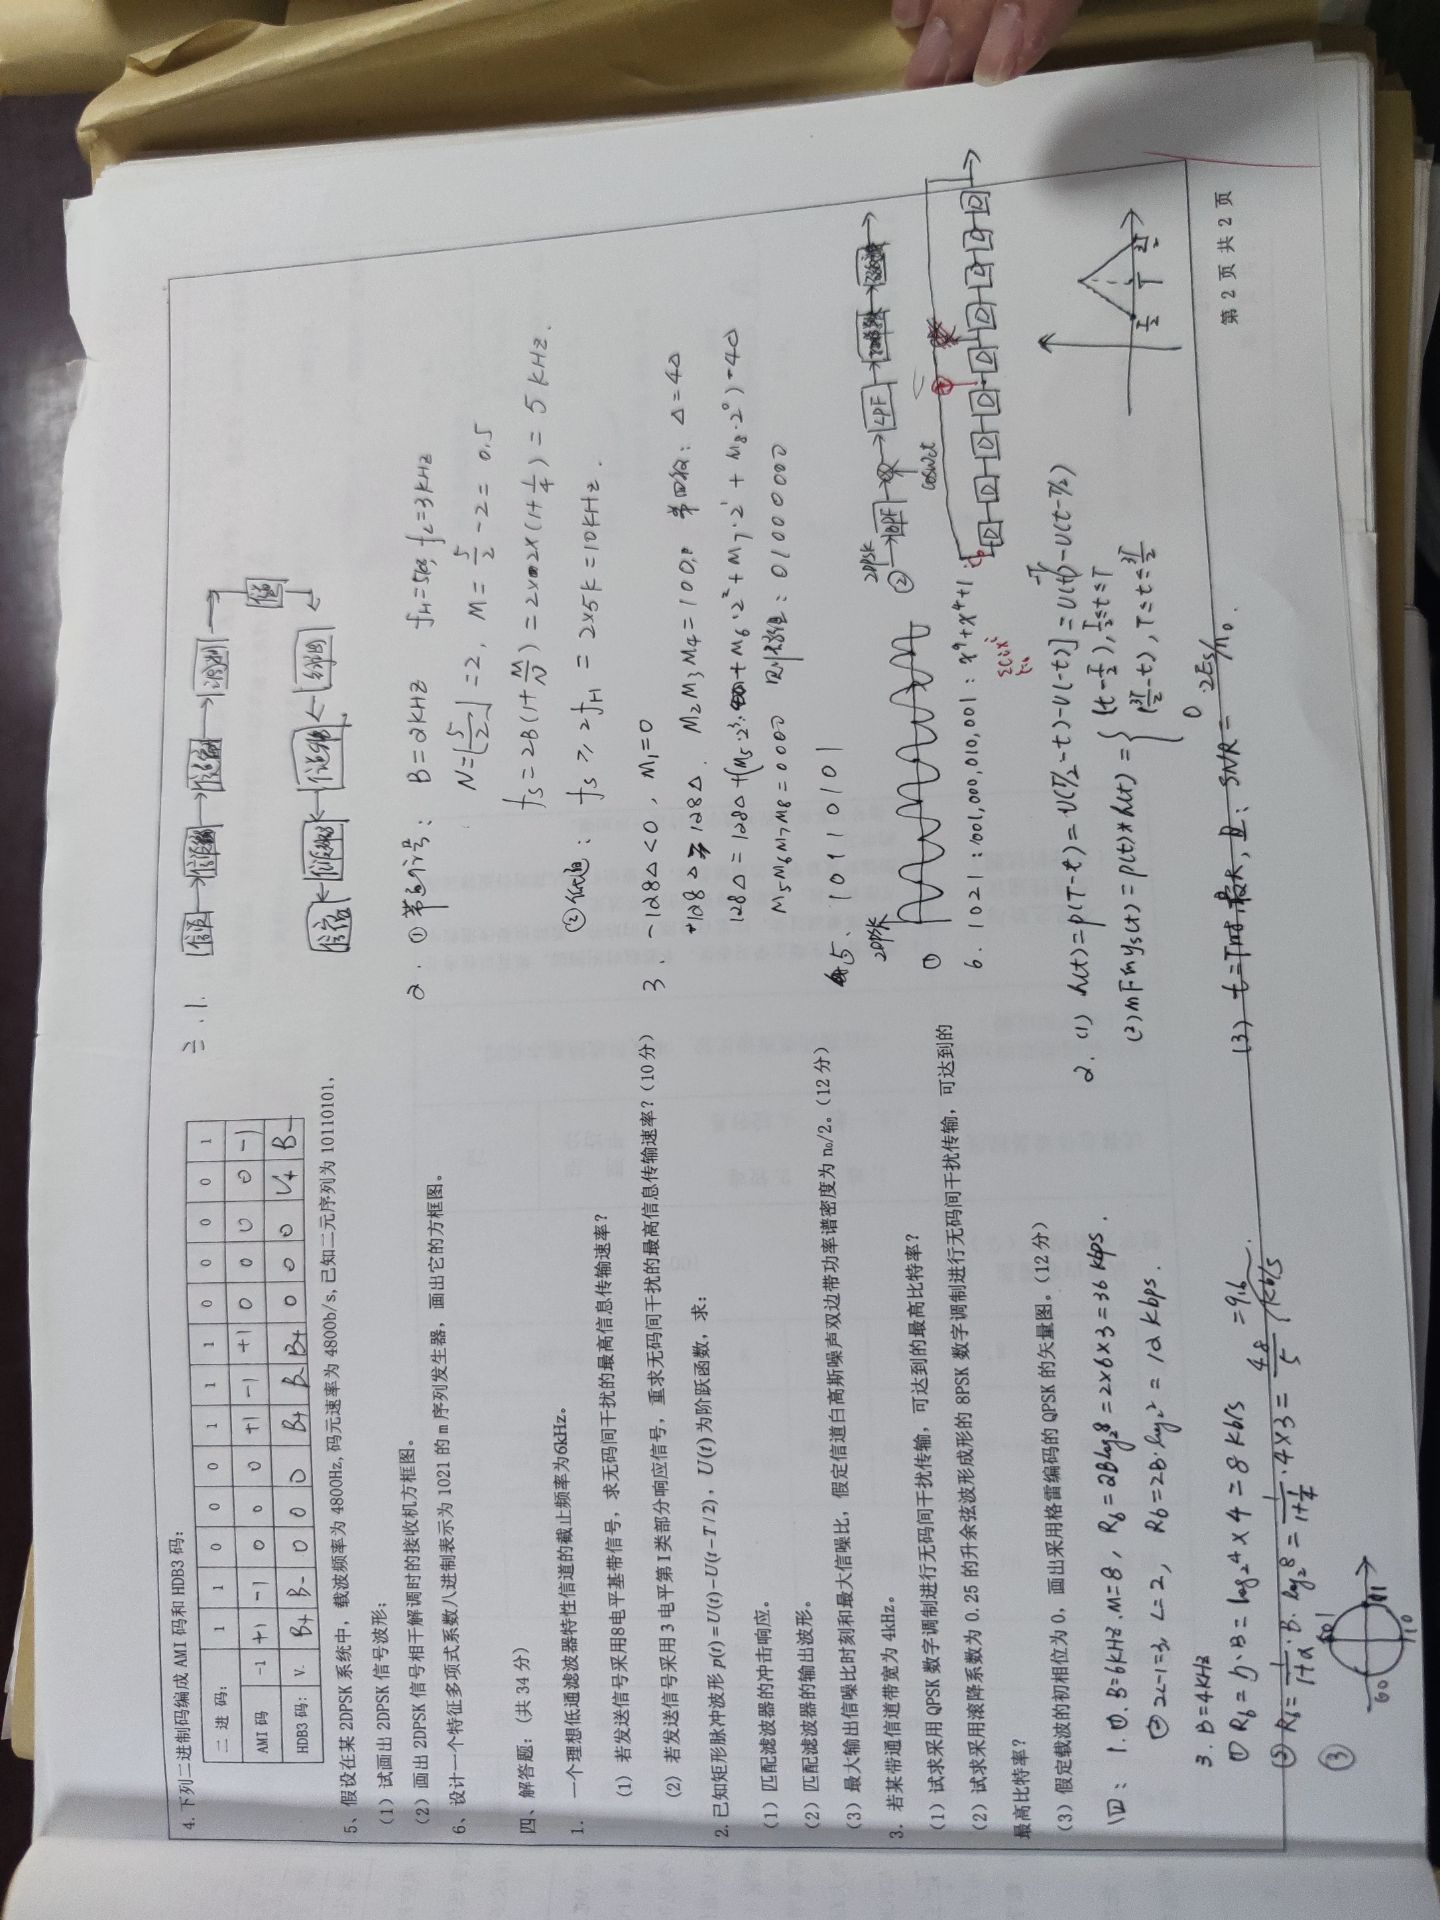 4.下列二进制码编成 AMI 码和 HDB3 码:
二 进 码: 1 1 0 0 0 1 1 1 0 0 0 0 1
AMI 码 -1 +1 -1 0 0 0 +1 -1 +1 0 0 0 0 -1
HDB3 码: V- B+ B- 0 0 0 B+ B- B+ 0 0 0 V+ B-
5、假设在某 2DPSK 系统中, 载波频率为 4800Hz, 码元速率为 4800b/s, 已知二元序列为 10110101,
(1) 试画出 2DPSK 信号波形;
(2) 画出 2DPSK 信号相干解调时的接收机方框图。
6、设计一个特征多项式系数八进制表示为 1021 的 m 序列发生器, 画出它的方框图。
四、解答题: (共 34 分)
1. 一个理想低通滤波器特性信道的截止频率为6kHz。
(1) 若发送信号采用8电平基带信号, 求无码间干扰的最高信息传输速率?
(2) 若发送信号采用 3 电平第 I 类部分响应信号, 重求无码间干扰的最高信息传输速率? (10 分)
2. 已知矩形脉冲波形 p(t)=U(t)-U(t-T/2), U(t) 为阶跃函数, 求:
(1) 匹配滤波器的冲击响应。
(2) 匹配滤波器的输出波形。
(3) 最大输出信噪比时刻和最大信噪比, 假定信道白高斯噪声双边带功率谱密度为 n₀/2。(12 分)
3. 若某带通信道带宽为 4kHz。
(1) 试求采用 QPSK 数字调制进行无码间干扰传输, 可达到的最高比特率?
(2) 试求采用滚降系数为 0.25 的升余弦波形成形的 8PSK 数字调制进行无码间干扰传输, 可达到的
最高比特率?
(3) 假定载波的初相位为 0, 画出采用格雷编码的 QPSK 的矢量图。(12 分)
四: 1. ①. B=6KHz. M=8, Rb=2Blog₂8=2×6×3=36 kbps.
② 2L-1=3, L=2, Rb=2B·log₂2 = 12 kbps.
3. B=4KHz
① Rb = η·B = log₂4 × 4 = 8 kb/s
② Rb = 1/(1+α)·B·log₂8 = 1/(1+1/4)·4×3 = 48/5 =9.6 kb/s
③
01
00 11
10
三.1. 信源 信源编 信道编 调制
信道
信宿 信源 信道 解调
2. ①带通信号: B=2KHz fH=5K, fL=3KHz
N=[5/2]=2, M=5/2-2=0.5
fs=2B(1+M/N)=2×2×(1+1/4)=5KHz.
②低通: fs≥2fH = 2×5K=10KHz.
3. -128Δ<0, M₁=0
128Δ≥128Δ. M₂M₃M₄=100, 第四段: Δ=4Δ
128Δ=128Δ+(M₅·2³+M₆·2²+M₇·2¹+M₈·2⁰)·4Δ
M₅M₆M₇M₈=0000 则码组: 01000000
5. 10110101
2DPSK
①
② 2DPSK BPF LPF
cosωct
6. 1021 : 001,000,010,001 : x⁹+x⁴+1
ΣCixⁱ
D D D D D D D D D
2. (1) h(t)=p(T-t)=U(T/2-t)-U(-t)]=U(t)-U(t-T/2)
(2) ys(t)=p(t)*h(t)= { (t-T/2), T/2≤t≤T
(3T/2-t), T≤t≤3T/2
0
T/2 T 3T/2
(3) t=T时,最大,且: SNR=2Es/n₀.
第 2 页 共 2 页